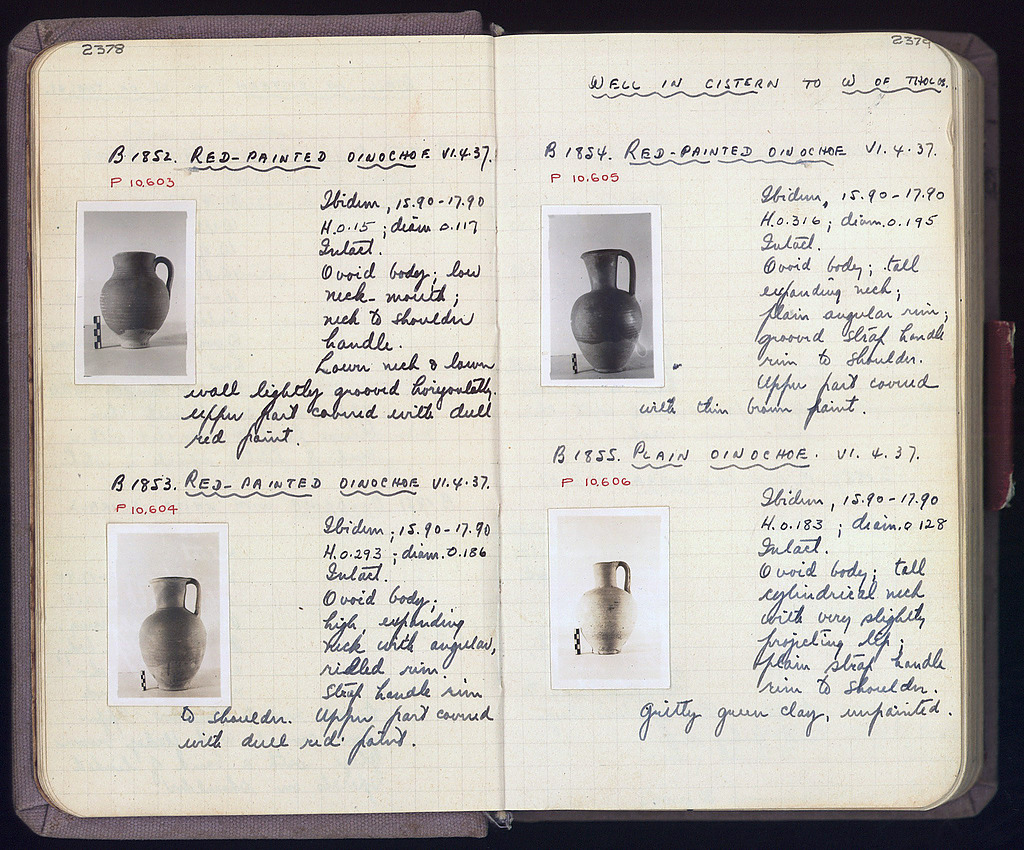 2378
B 1852. RED-PAINTED OINOCHOE VI.4.37.
P 10,603
Ibidem, 15.90-17.90
H.0.15; diam. 0.117
Intact.
Ovoid body; low
neck-mouth;
neck to shoulder
handle.
Lower neck & lower
wall lightly grooved horizontally.
Upper part covered with dull
red paint.
B 1853. RED-PAINTED OINOCHOE VI.4.37.
P 10,604
Ibidem, 15.90-17.90
H.0.293; diam. 0.186
Intact.
Ovoid body;
high, expanding
neck with angular,
ridled rim.
Strap handle rim
to shoulder. Upper part covered
with dull red paint.
2379
WELL IN CISTERN TO W OF THOLOS.
B 1854. RED-PAINTED OINOCHOE VI.4.37.
P 10,605
Ibidem, 15.90-17.90
H.0.316; diam. 0.195
Intact.
Ovoid body; tall
expanding neck;
plain angular rim;
grooved strap handle
rim to shoulder.
Upper part covered
with thin brown paint.
B 1855. PLAIN OINOCHOE. VI.4.37.
P 10,606
Ibidem, 15.90-17.90
H.0.183; diam. 0.128
Intact.
Ovoid body; tall
cylindrical neck
with very slightly
projecting lip;
plain strap handle
rim to shoulder.
Gritty green clay, unpainted.